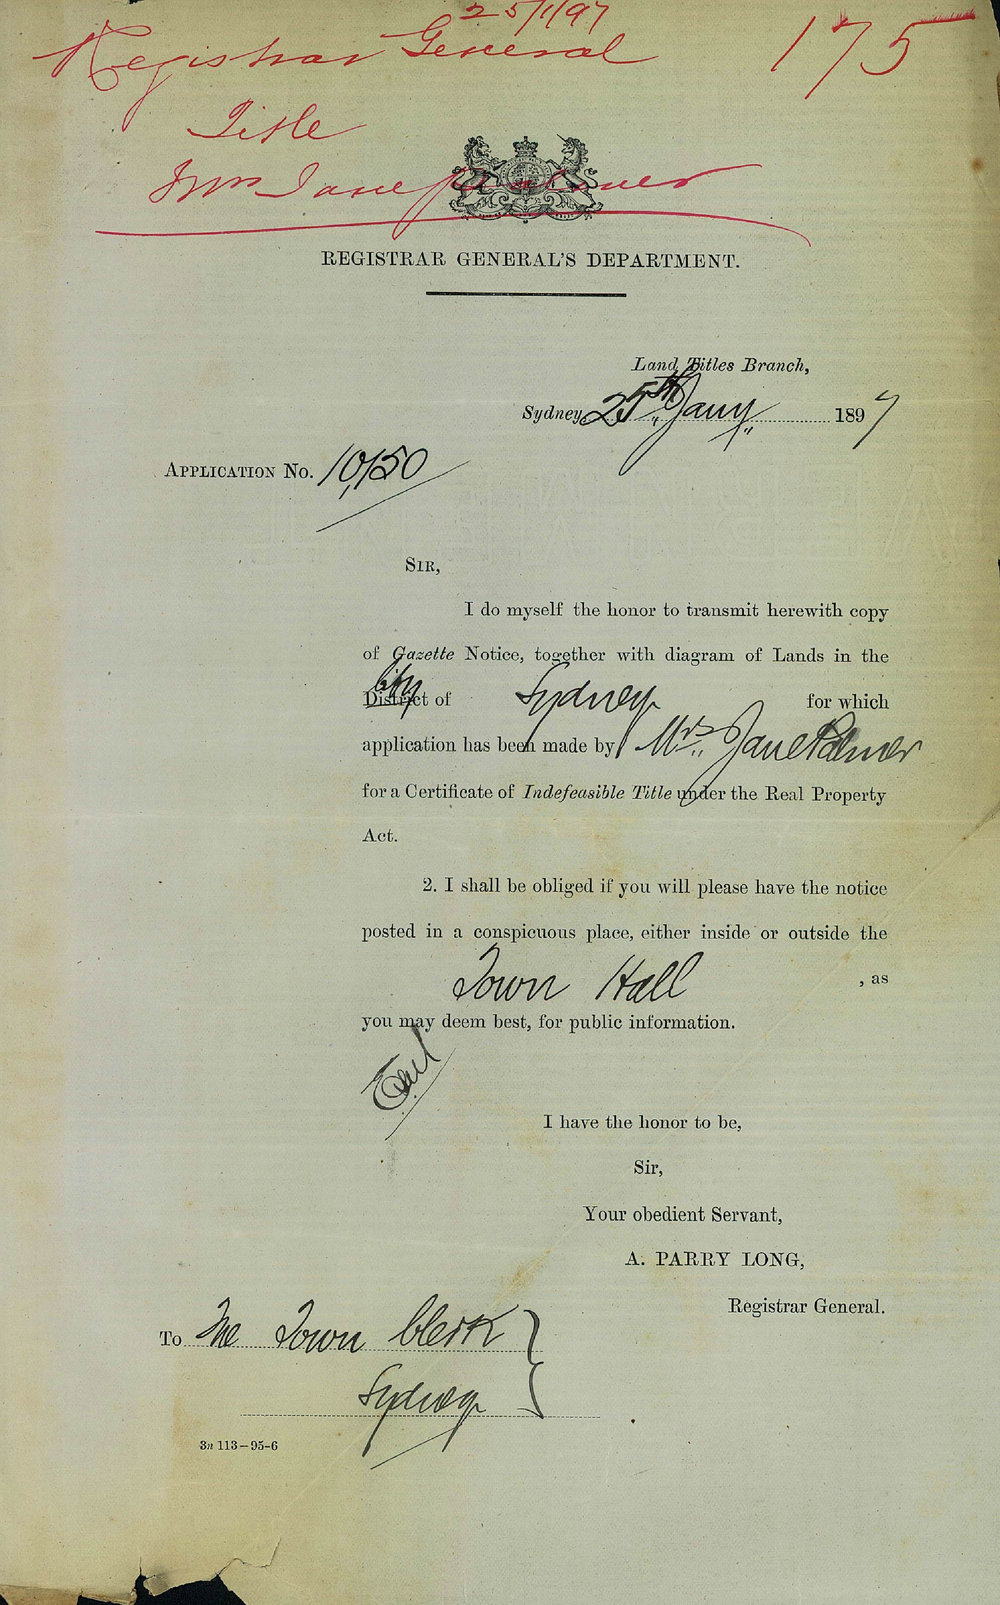 25/1/97
Registrar General 175
Title
Mrs Jane Palmer
REGISTRAR GENERAL'S DEPARTMENT.
Land Titles Branch,
Sydney, 25th Jany 1897
APPLICATION No. 10,150
SIR,
I do myself the honor to transmit herewith copy
of Gazette Notice, together with diagram of Lands in the
City
District of Sydney for which
application has been made by Mrs Jane Palmer
for a Certificate of Indefeasible Title under the Real Property
Act.
2. I shall be obliged if you will please have the notice
posted in a conspicuous place, either inside or outside the
Town Hall , as
you may deem best, for public information.
I have the honor to be,
Sir,
Your obedient Servant,
A. PARRY LONG,
Registrar General.
To The Town Clerk
Sydney
3n 113–95–6